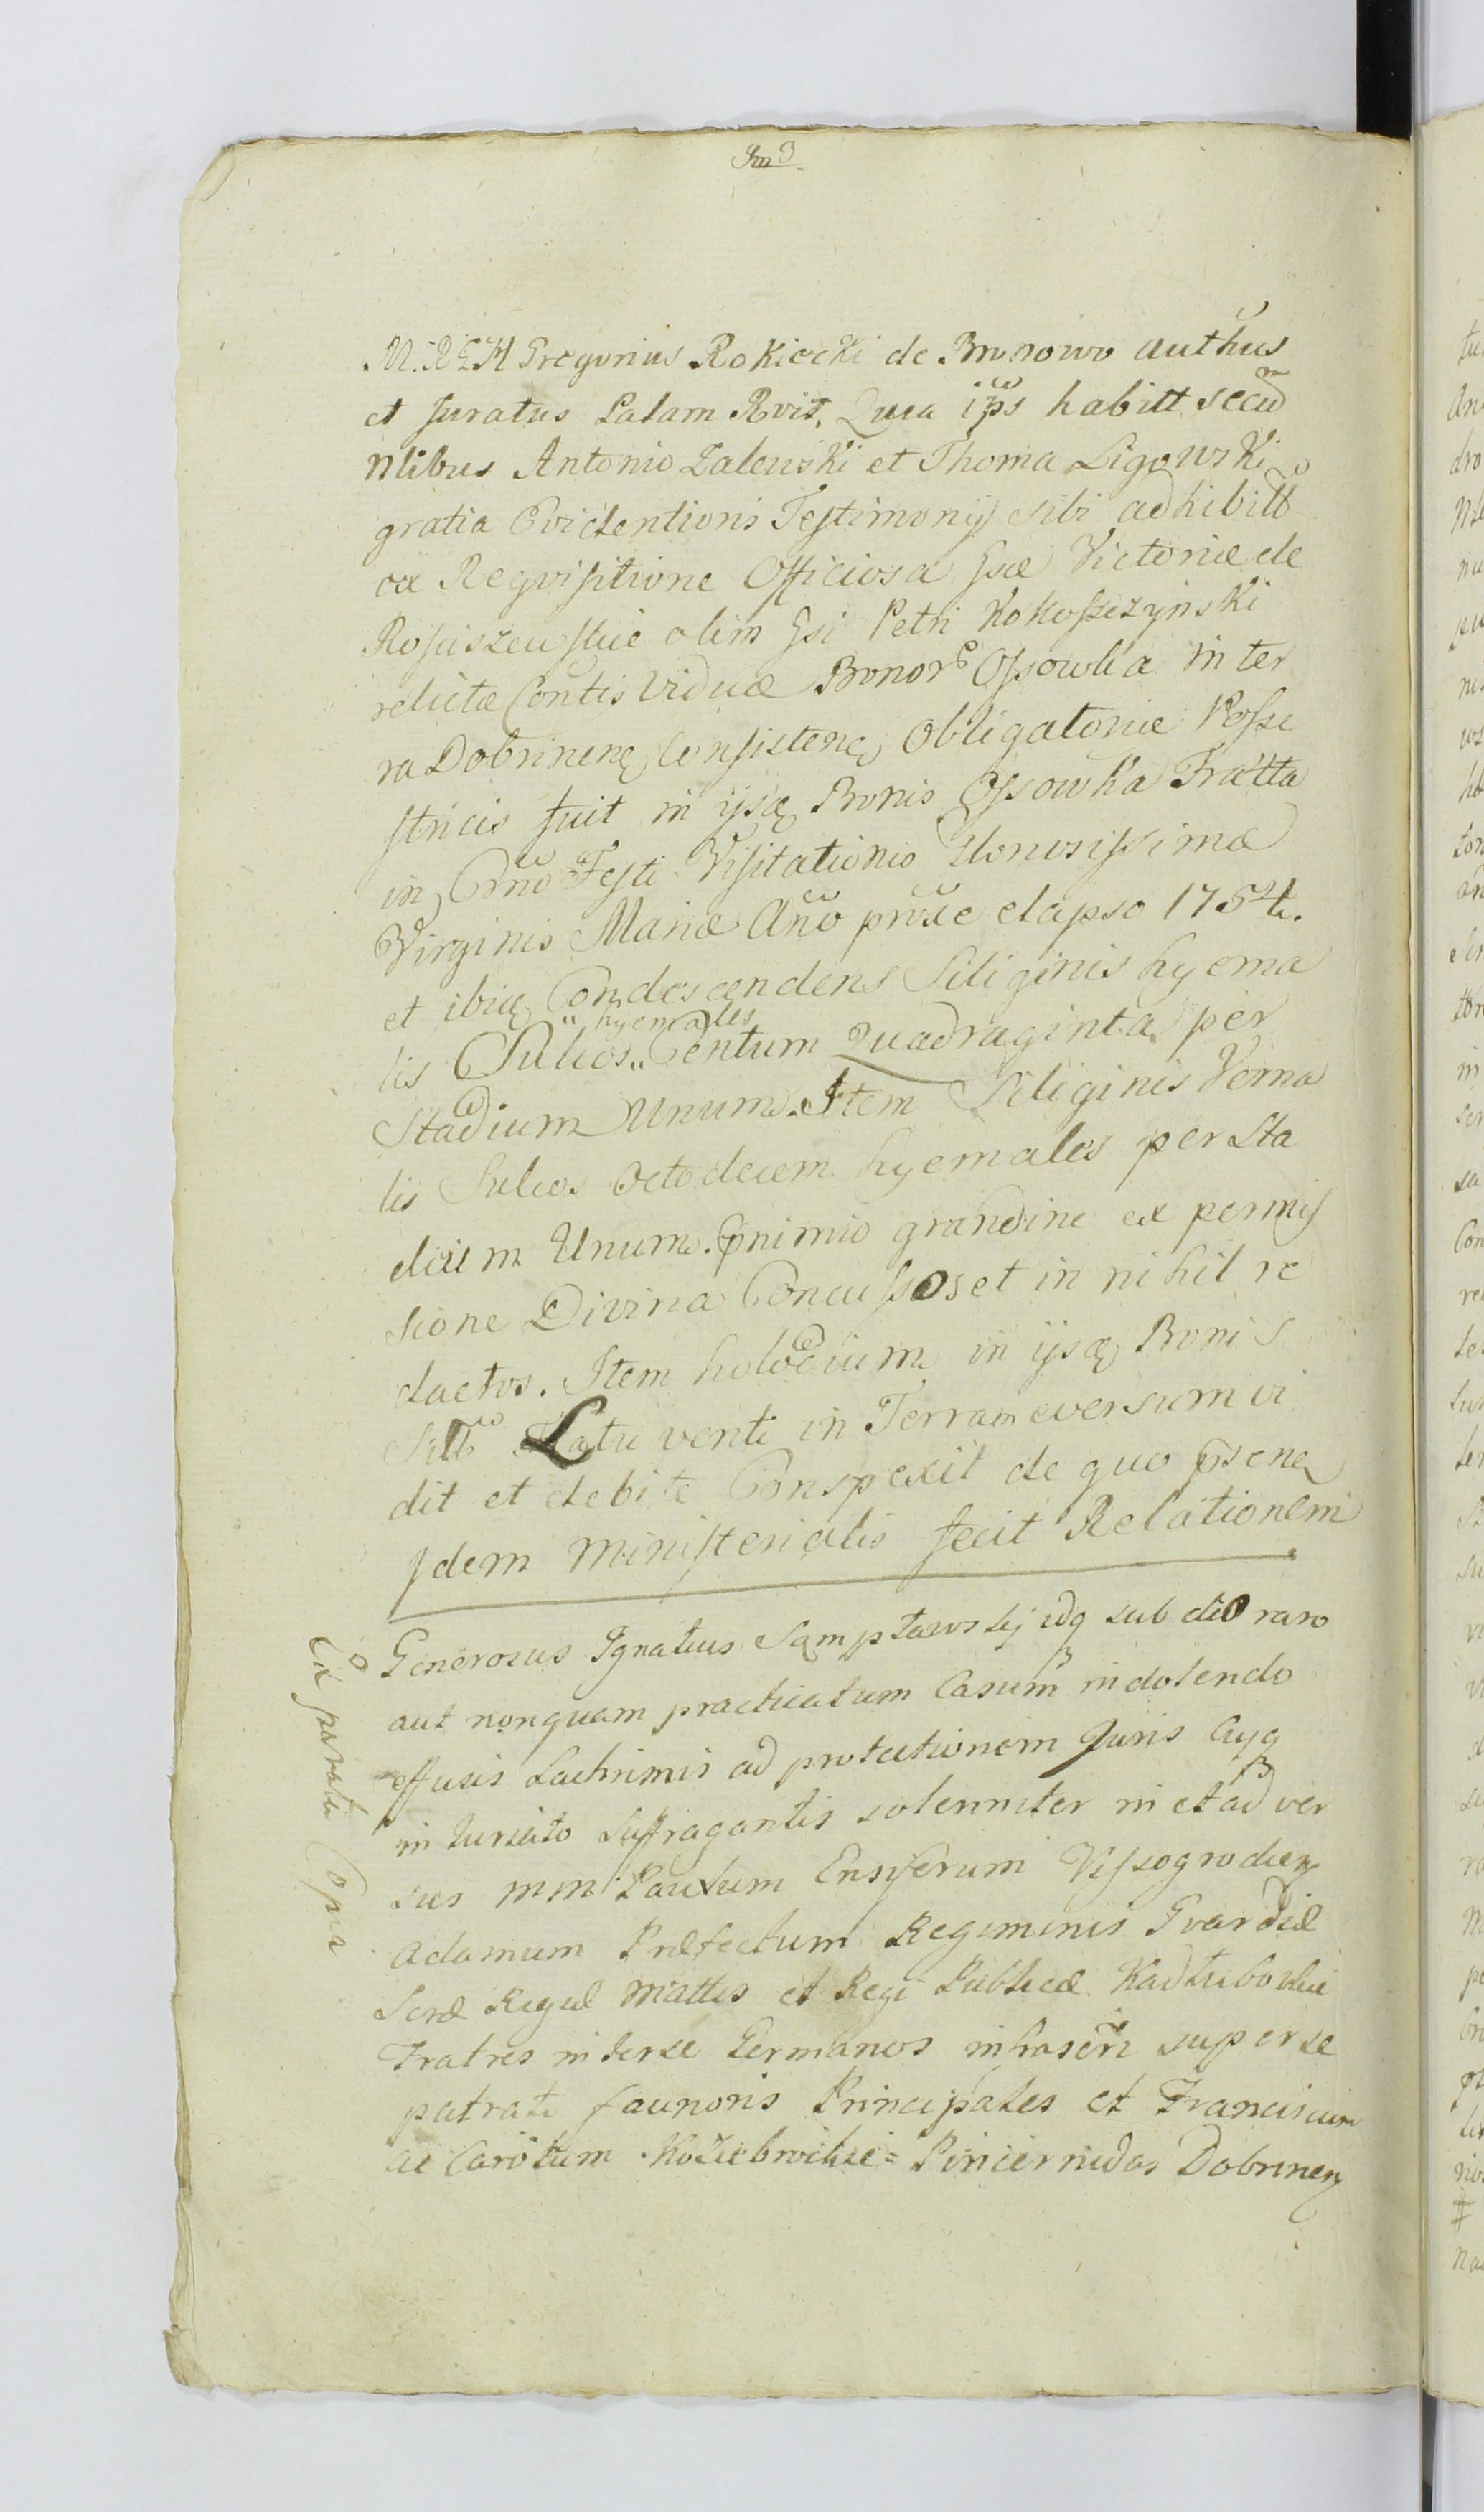 M. R. G. H Gregorius Rokicki de Brunowo authus
et Juratus Palam Rvit, Quia ips habitt secũ
Nlibus Antonio Zalewski et Thoma Ligowski
gratia Evidentioris Testimonij sibi adhibitt
ex Reqvisitione Officiosa Gsæ Victoriæ de
Rosciszewskie olim Gsi Petri Kokoszczynski
relictæ Contis Viduæ Bonorũ Ossowka in ter
ra Dobrinenę Consistenę Obligatoriæ Posse
stricis fuit in ijsq Bonis Ossowka Fratta
in Crño Festi Visitationis Glonosissimæ
Virginis Mariæ Año prõxe elapso 1754.
et ibiq Condescendens Siliginis hyema
lis Sulcos „hyemales„ Centum Quadraginta per
Stadium Unum. Item Siliginis Verna
lis Sulcos Octodecem hyemales per Sta
dium Unum. Cnimio grandine ex permis
sione Divina Concussos et in nihil re
dactos. Item holodium in ijsq Bonis
Sitt Flatu venti in Terram eversum vi
dit et debite Conspexit de quo psenę
Idem Ministerialis fecit Relationem
Generosus Ignatius Samplawskij idq sub dio raro
aut nonquam practicatum Casum indolendo
effusis Lachrimis ad protectionem Juris Cuyq
in turiato suffragantis solenniter in et adver
sus MM Paulum Ensyferum Vissogrodien
Adamum Præfectum Regiminis Gvardiæ
Seræ Regiæ Mattis et Regi Publicæ Kadłubowskie
Fratres inter se Germanos infrascri super se
patrati facinoris Principales et Franciscum
ac Carolum Koziebrodzkie = Pincernidas Dobrinen
Ex parte Copia